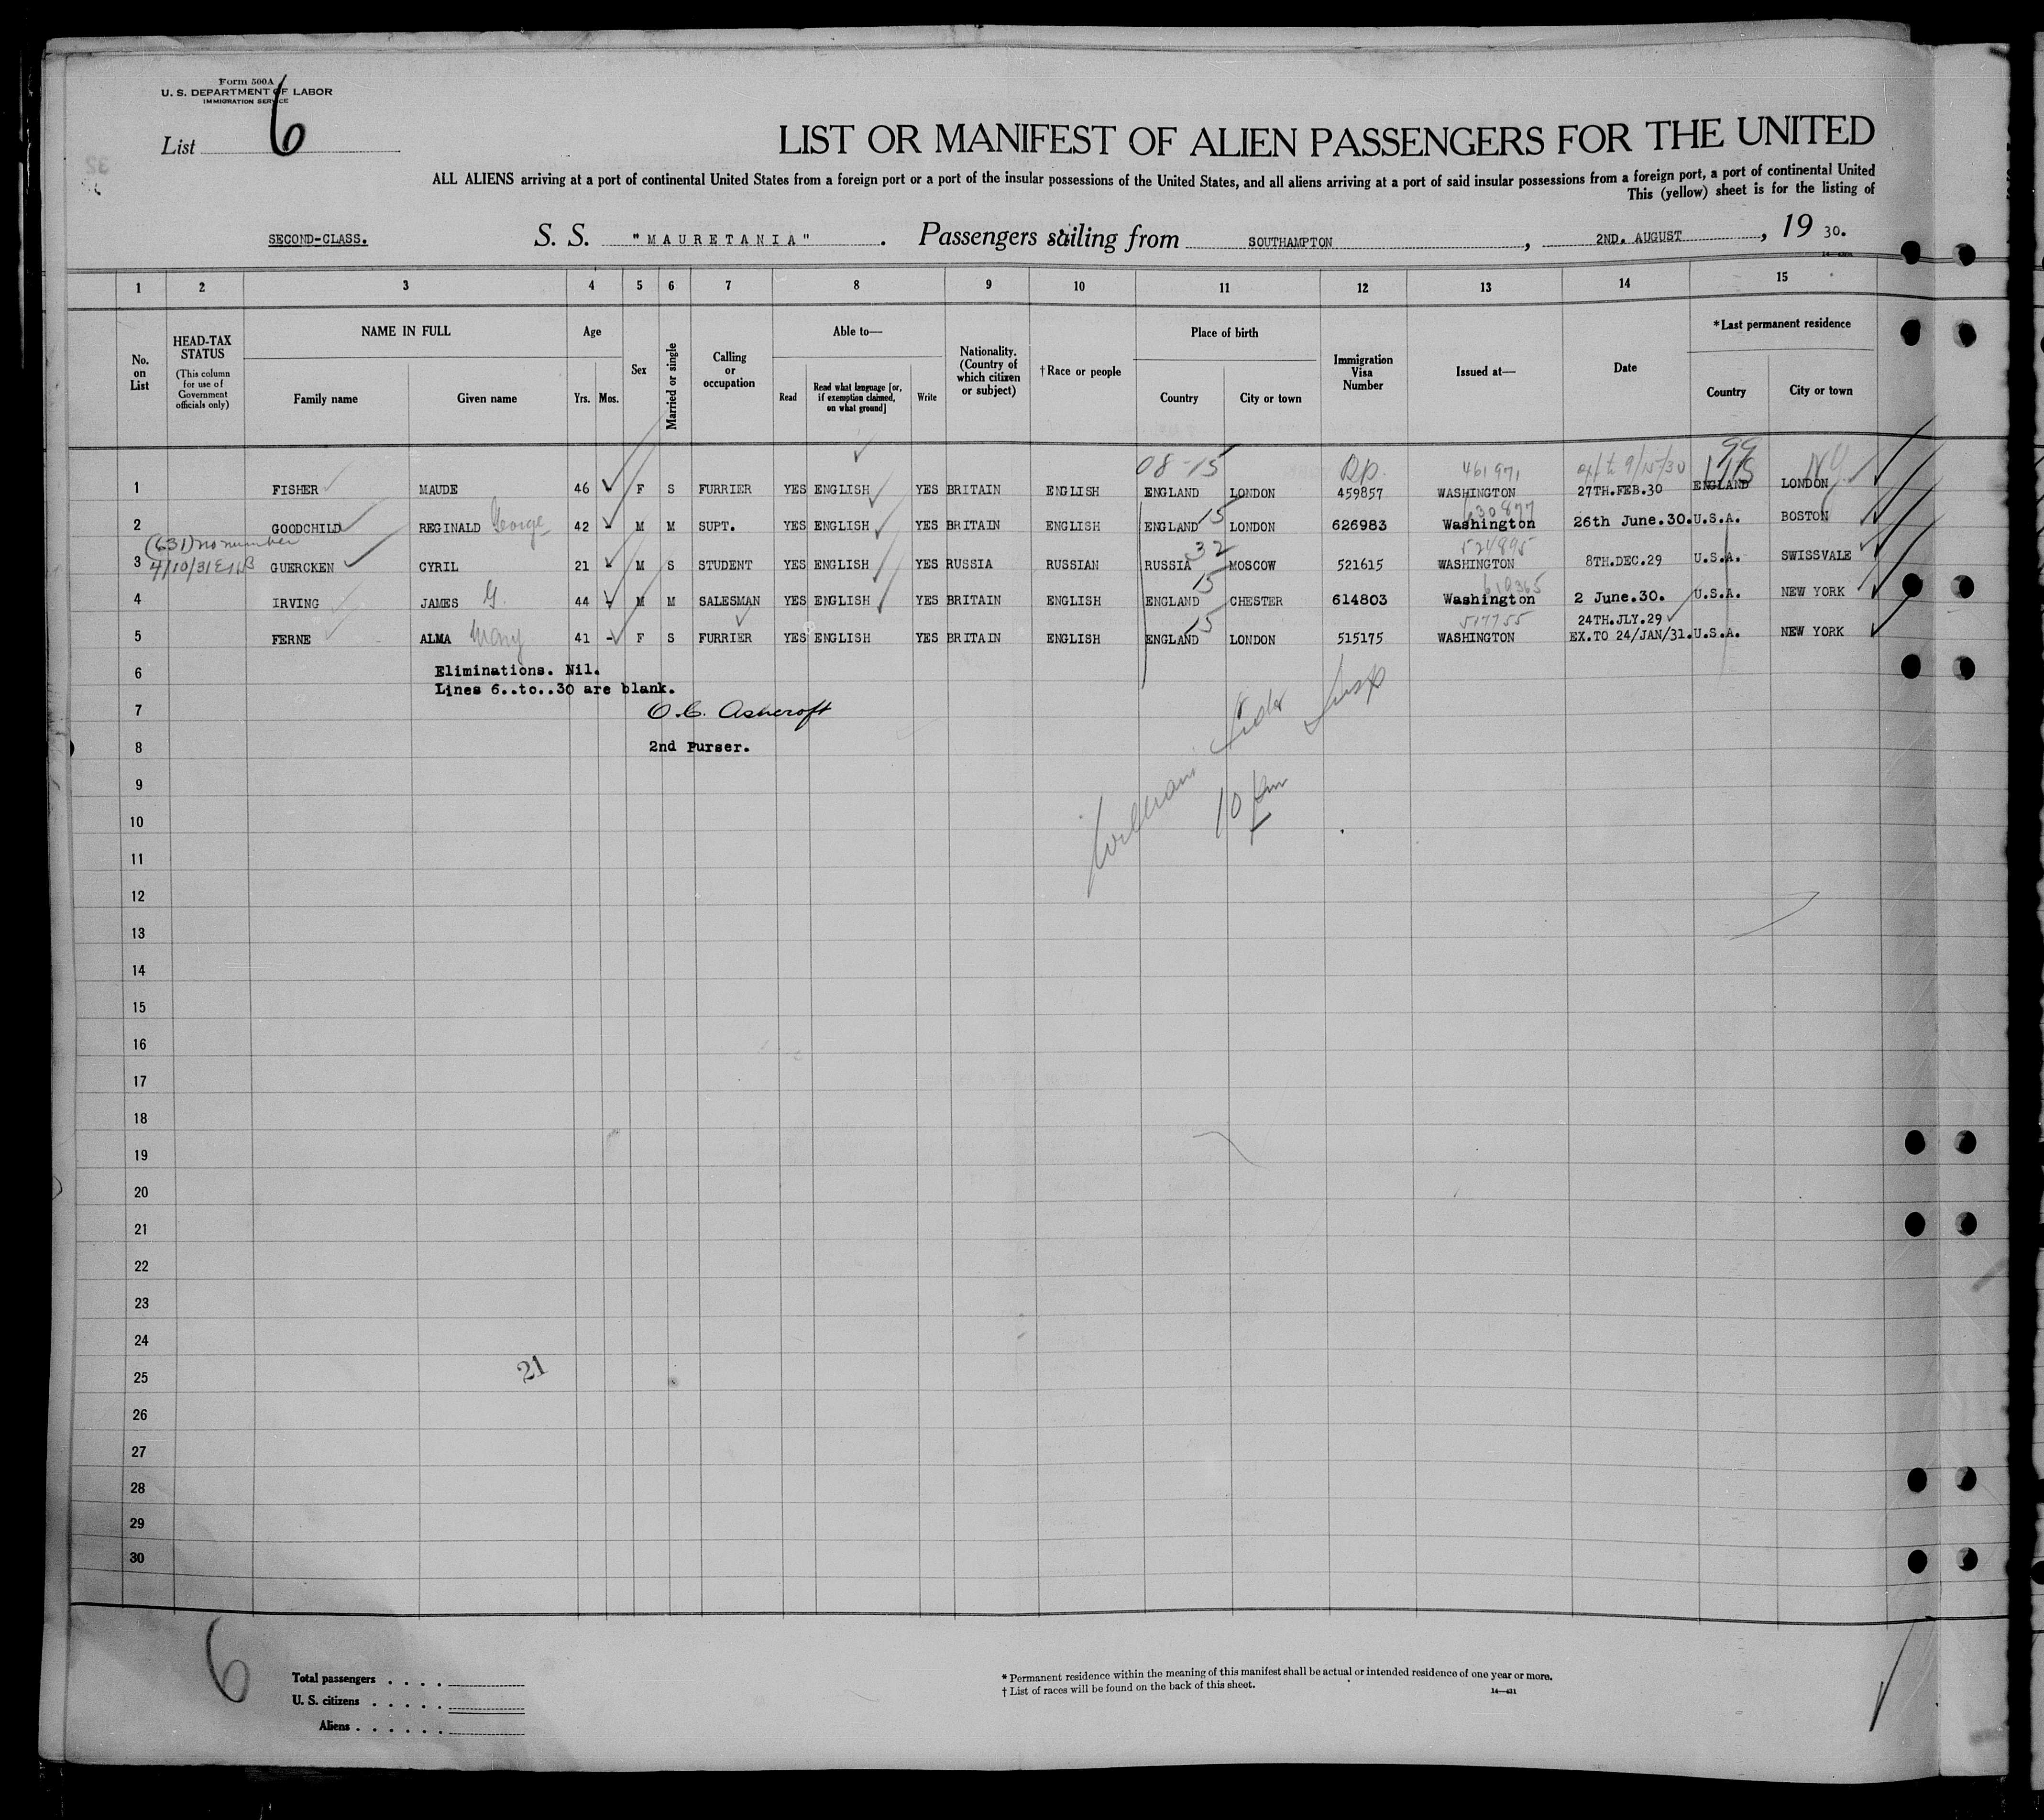 Form 500A
U. S. DEPARTMENT OF LABOR
IMMIGRATION SERVICE
List 6
LIST OR MANIFEST OF ALIEN PASSENGERS FOR THE UNITED
ALL ALIENS arriving at a port of continental United States from a foreign port or a port of the insular possessions of the United States, and all aliens arriving at a port of said insular possessions from a foreign port, a port of continental United
This (yellow) sheet is for the listing of
SECOND-CLASS. S. S. "MAURETANIA". Passengers sailing from SOUTHAMPTON, 2ND. AUGUST, 19 30.
1 2 3 4 5 6 7 8 9 10 11 12 13 14 15
No. on List
HEAD-TAX STATUS (This column for use of Government officials only)
NAME IN FULL Family name Given name
Age Yrs. Mos.
Sex
Married or single
Calling or occupation
Able to— Read Read what language [or, if exemption claimed, on what ground] Write
Nationality. (Country of which citizen or subject)
† Race or people
Place of birth Country City or town
Immigration Visa Number
Issued at—
Date
*Last permanent residence Country City or town
08-15 461971 9/15/30 99 US NY
1 FISHER MAUDE 46 F S FURRIER YES ENGLISH YES BRITAIN ENGLISH ENGLAND LONDON 459857 WASHINGTON 27TH.FEB.30 ENGLAND LONDON
15 630877
2 GOODCHILD REGINALD George 42 - M M SUPT. YES ENGLISH YES BRITAIN ENGLISH ENGLAND LONDON 626983 Washington 26th June.30. U.S.A. BOSTON
(631) no number 32 524895
3 4/10/31 GUERCKEN CYRIL 21 - M S STUDENT YES ENGLISH YES RUSSIA RUSSIAN RUSSIA MOSCOW 521615 WASHINGTON 8TH.DEC.29 U.S.A. SWISSVALE
15 619365
4 IRVING JAMES G 44 - M M SALESMAN YES ENGLISH YES BRITAIN ENGLISH ENGLAND CHESTER 614803 Washington 2 June.30. U.S.A. NEW YORK
15 517755 24TH.JLY.29
5 FERNE ALMA Mary 41 - F S FURRIER YES ENGLISH YES BRITAIN ENGLISH ENGLAND LONDON 515175 WASHINGTON EX.TO 24/JAN/31. U.S.A. NEW YORK
6 Eliminations. Nil.
Lines 6..to..30 are blank.
7 O.C. Ashcroft
8 2nd Purser.
9
10 10 pm
11
12
13
14
15
16
17
18
19
20
21
22
23
24
25 21
26
27
28
29
30
6
Total passengers . . . .
U. S. citizens . . . . .
Aliens . . . . . .
* Permanent residence within the meaning of this manifest shall be actual or intended residence of one year or more.
† List of races will be found on the back of this sheet.
14—431